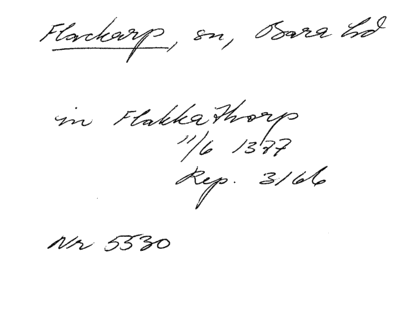 Flackarp, sn, Bara hd
in Flakka Thorp
11/6 1377
Rep. 3166
Nr 5530